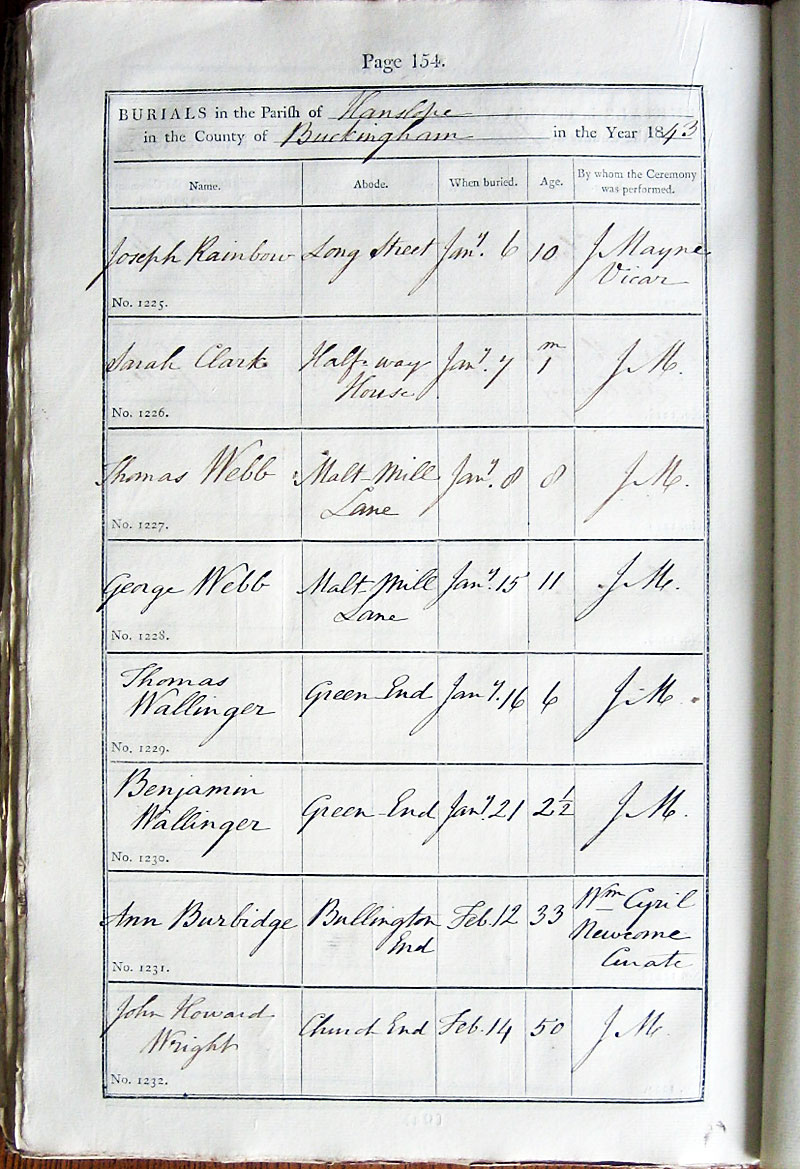 Page 154.
BURIALS in the Parish of Hanslope
in the County of Buckingham in the Year 1843
Name. Abode. When buried. Age. By whom the Ceremony was performed.
Joseph Rainbow Long Street Jany. 6 10 J Mayne
Vicar
No. 1225.
Sarah Clark Half-way Jany. 7 1m J M.
House
No. 1226.
Thomas Webb Malt Mill Jany. 8 8 J M.
Lane
No. 1227.
George Webb Malt Mill Jany. 15 11 J M.
Lane
No. 1228.
Thomas
Wallinger Green End Jany. 16 6 J M
No. 1229.
Benjamin
Wallinger Green End Jany. 21 2½ J M.
No. 1230.
Ann Burbidge Bullington Feb. 12 33 Wm Cyril
End Newcome
Curate
No. 1231.
John Howard Church End Feb. 14 50 J M
Wright
No. 1232.